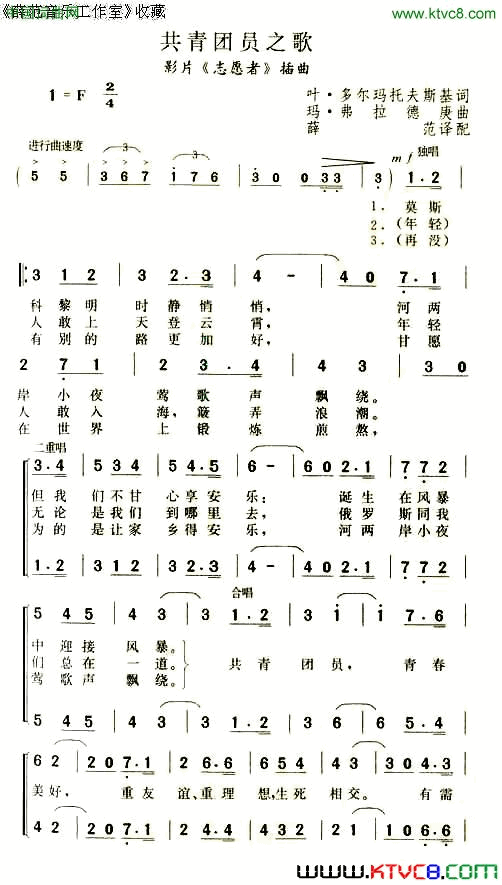 《薛范音乐工作室》收藏
www.ktvc8.com
共青团员之歌
影片《志愿者》插曲
1=F 2/4
叶·多尔玛托夫斯基词
玛·弗拉德庚曲
薛范译配
进行曲速度
mf 独唱
5 5 | 3 6 7 i 7 6 | 3 0 0 3 3 | 3) 1·2 |
1. 莫斯
2.(年轻)
3.(再没)
3 1 2 | 3 2·3 | 4 - | 4 0 7·1 |
科黎明时静悄悄, 河两
人敢上天登云霄, 年轻
有别的路更加好, 甘愿
2 7 1 | 2 3·4 | 4 3 | 3 0
岸小夜莺歌声飘绕。
人敢入海,簸弄浪潮。
在世界上锻炼煎熬,
二重唱
3·4 5 3 4 | 5 4·5 | 6 - | 6 0 2·1 | 7 7 2 |
但我们不甘心享安乐; 诞生在风暴
无论是我们到哪里去, 俄罗斯同我
为的是让家乡得安乐, 河两岸小夜
1·2 3 1 2 | 3 2·3 | 4 - | 4 0 2·1 | 7 7 2 |
合唱
5 4 5 | 4 3 | 3 1·2 | 3 i | i 7·6 |
中迎接风暴。
们总在一道。 共青团员,青春
莺歌声飘绕。
5 4 5 | 4 3 | 3 1·2 | 3 6 | 6 5·4 |
6 2 | 2 0 7·1 | 2 6 | 6 2·1 | 7 2 | 3 0 4·3 |
美好, 重友谊、重理想,生死相交。 有需
4 2 | 2 0 7·1 | 2 4 | 4 2·1 | 7 2 | 1 0 6·6 |
www.KTVC8.com